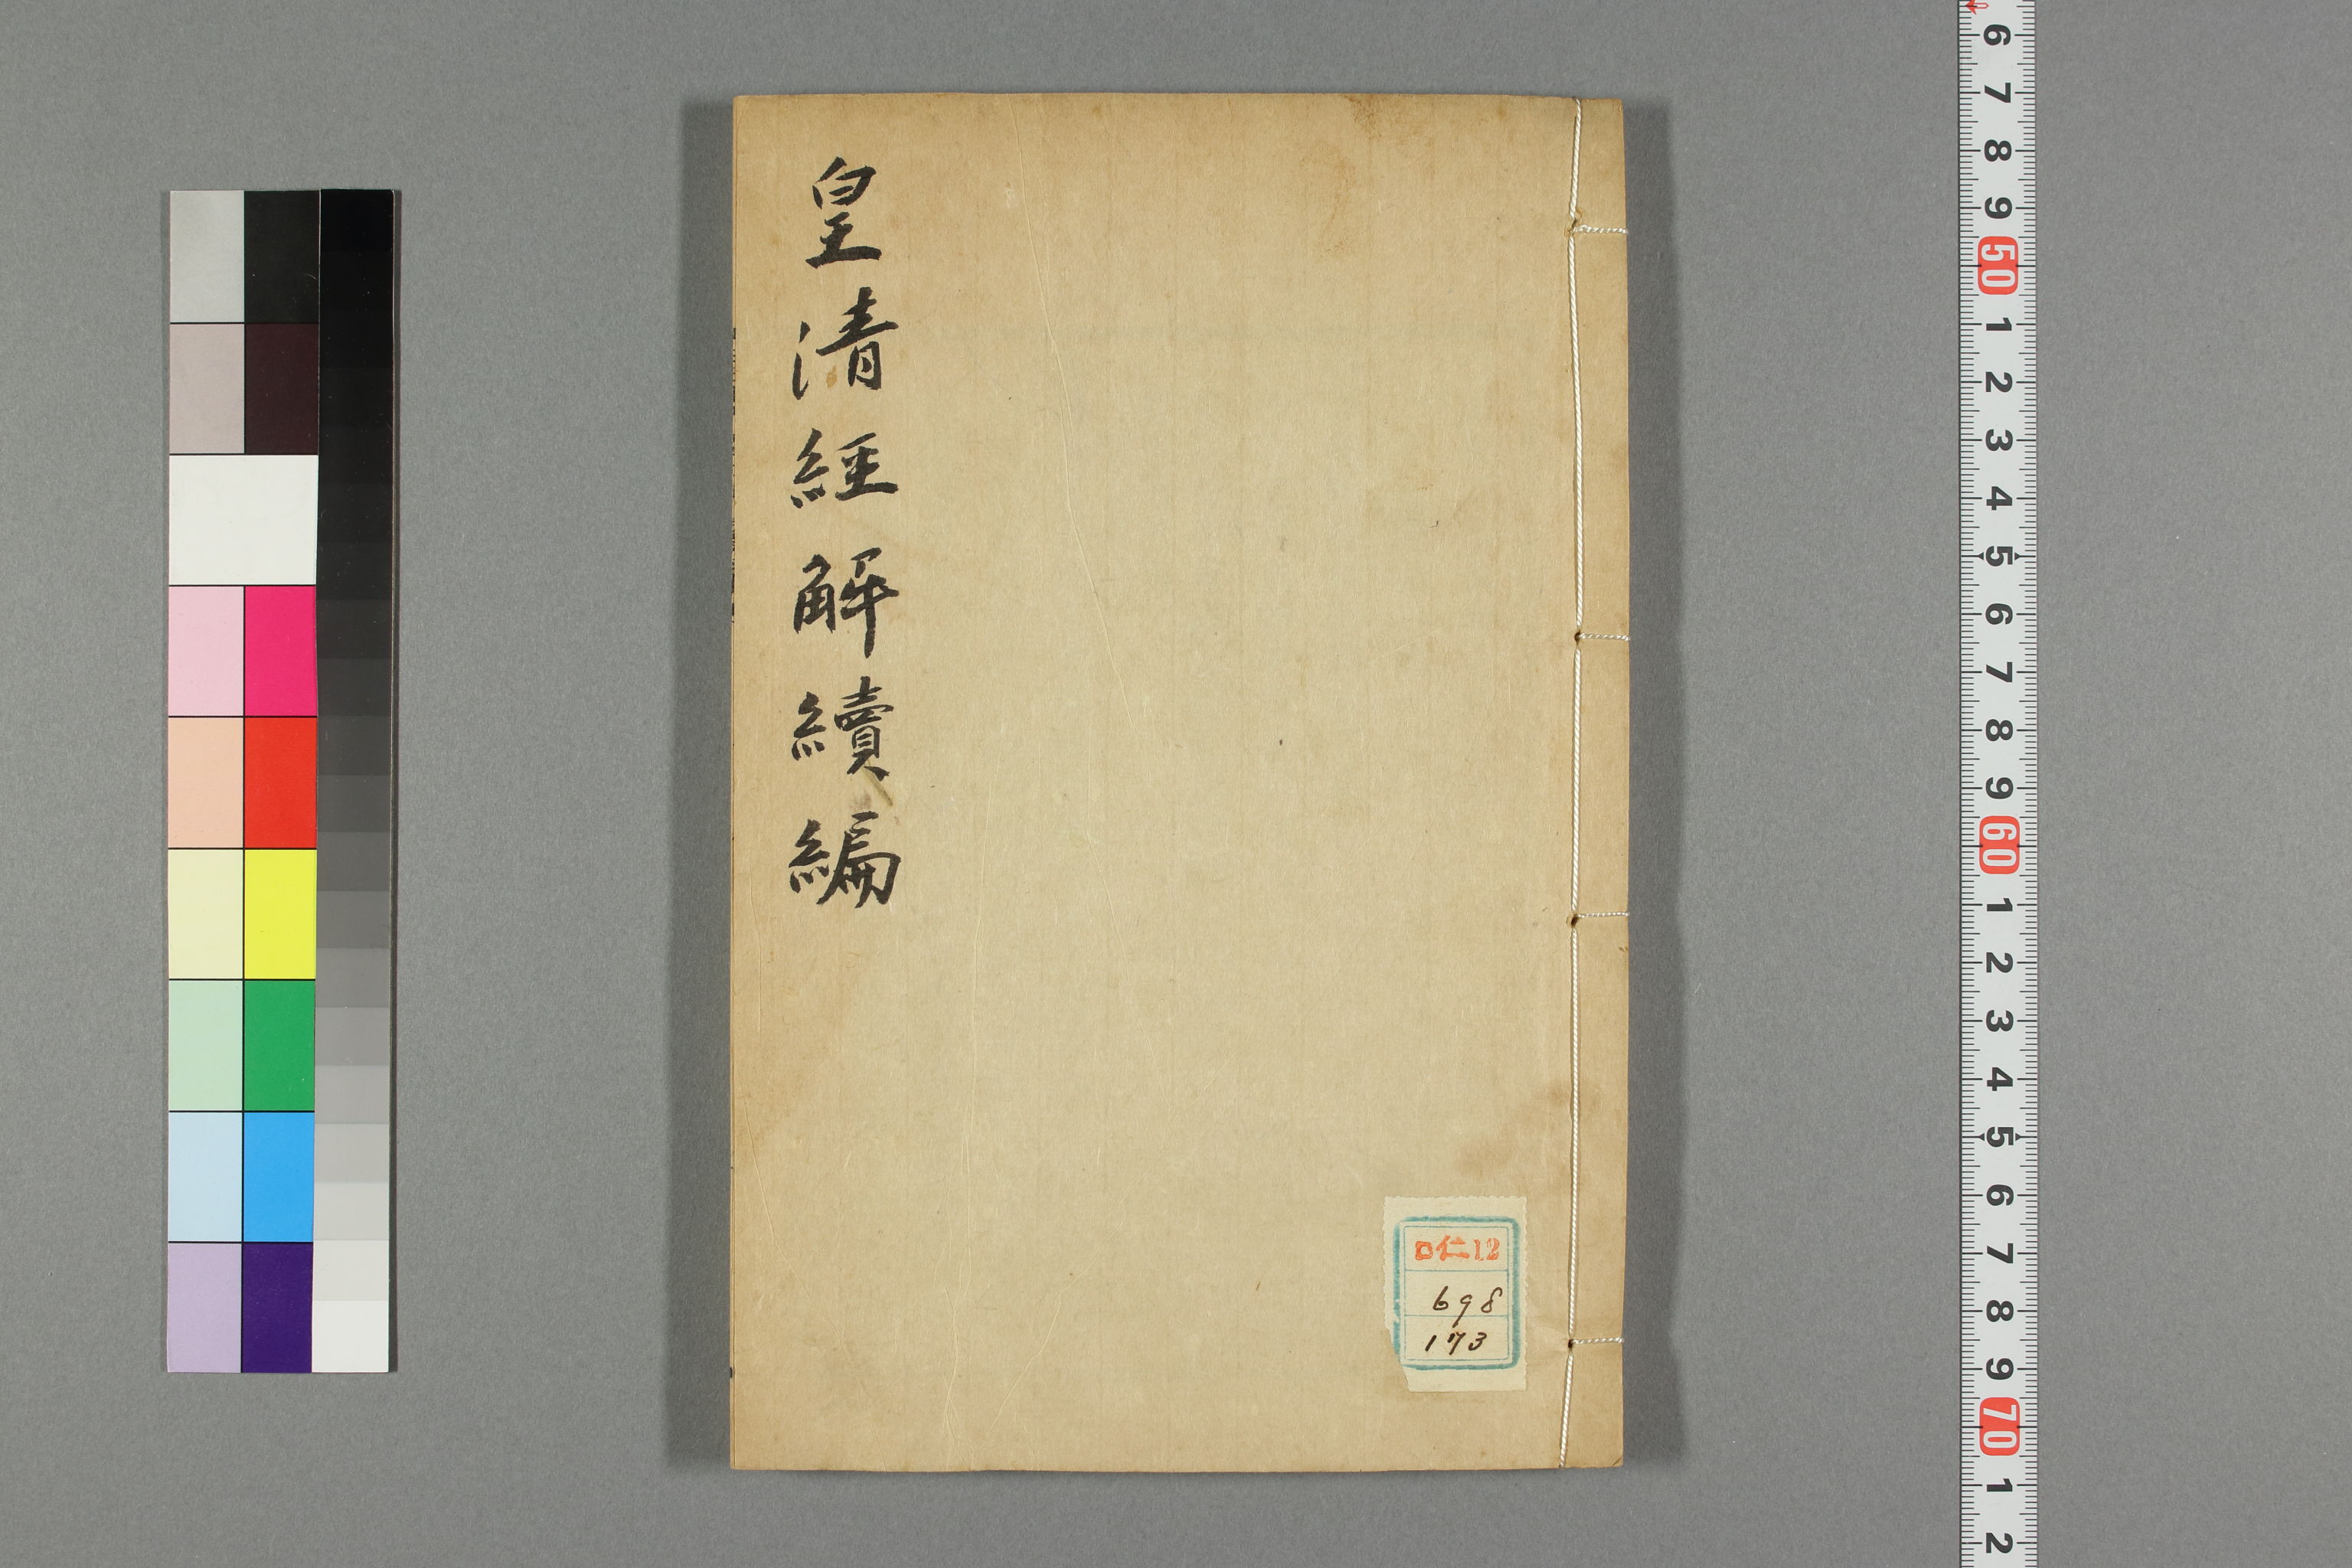 皇清經解續編
口仁12
698
173
6
7
8
9
50
1
2
3
4
5
6
7
8
9
60
1
2
3
4
5
6
7
8
9
70
1
2